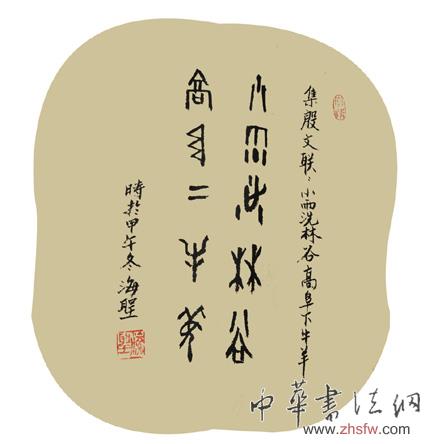 集殷文联:小雨洗林谷高阜下牛羊
小雨洗林谷
高阜下牛羊
時於甲午冬海聖
中華書法網
www.zhsfw.com